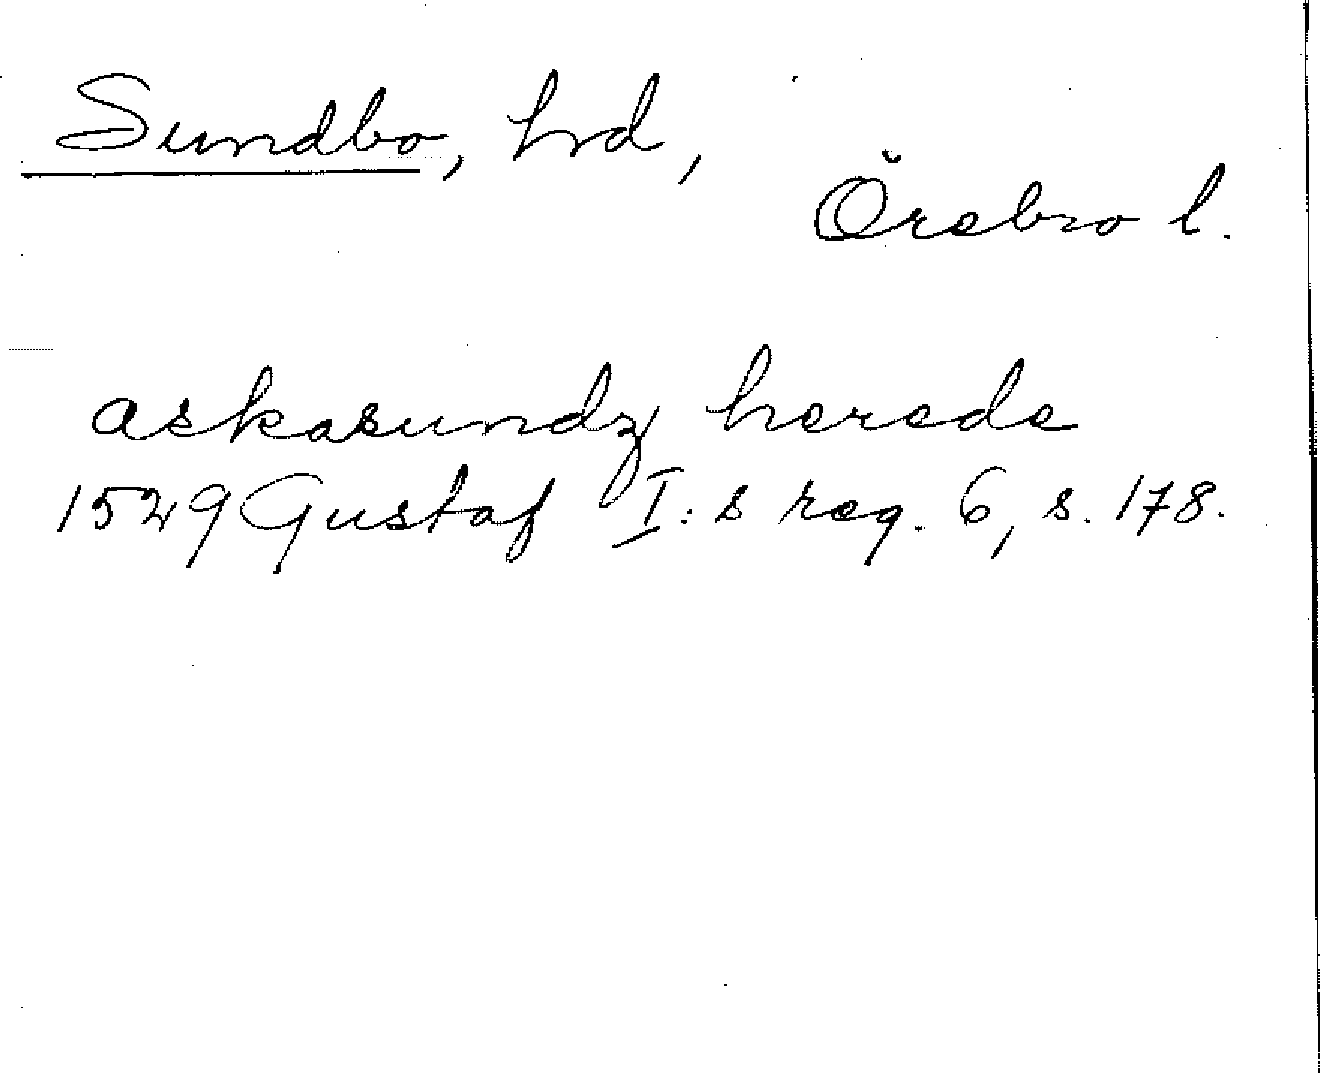 Sundbo, hrd,
Örebro l.
askasundz herede
1529 Gustaf I:s reg. 6, s. 178.